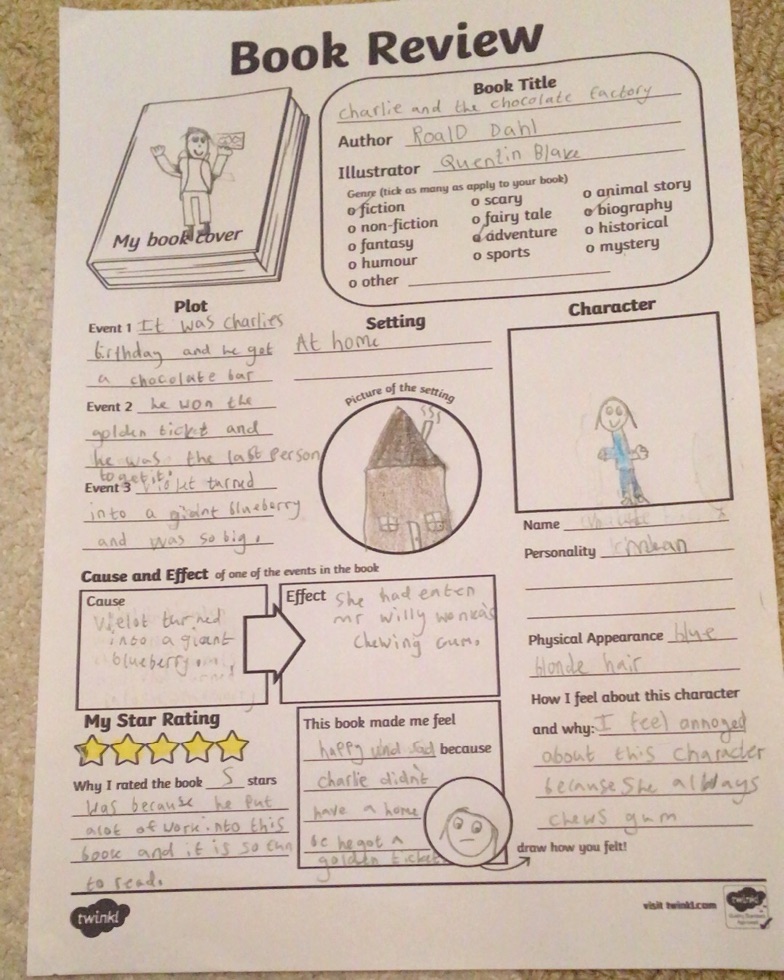 Book Review
My book cover
Book Title
Charlie and the chocolate factory
Author RoalD Dahl
Illustrator Quentin Blake
Genre (tick as many as apply to your book)
o fiction
o non-fiction
o fantasy
o humour
o other
o scary
o fairy tale
o adventure
o sports
o animal story
o biography
o historical
o mystery
Plot
Event 1 It was charlies
birthday and he got
a chocolate bar
Event 2 he won the
golden ticket and
he was the last person
to get it.
Event 3 Violet turned
into a giant blueberry
and was so big.
Setting
At home
Picture of the setting
Character
Name
Personality mean
Physical Appearance blue
blonde hair
How I feel about this character
and why: I feel annoyed
about this character
because she always
chews gum
Cause and Effect of one of the events in the book
Cause
Vielot turned
into a giant
blueberry
Effect She had enten
mr willy wonka's
chewing gum.
My Star Rating
Why I rated the book 5 stars
was because he put
alot of work into this
book and it is so fun
to read.
This book made me feel
happy and sad because
charlie didn't
have a home
he got a
golden ticket
draw how you felt!
twinkl
visit twinkl.com
twinkl